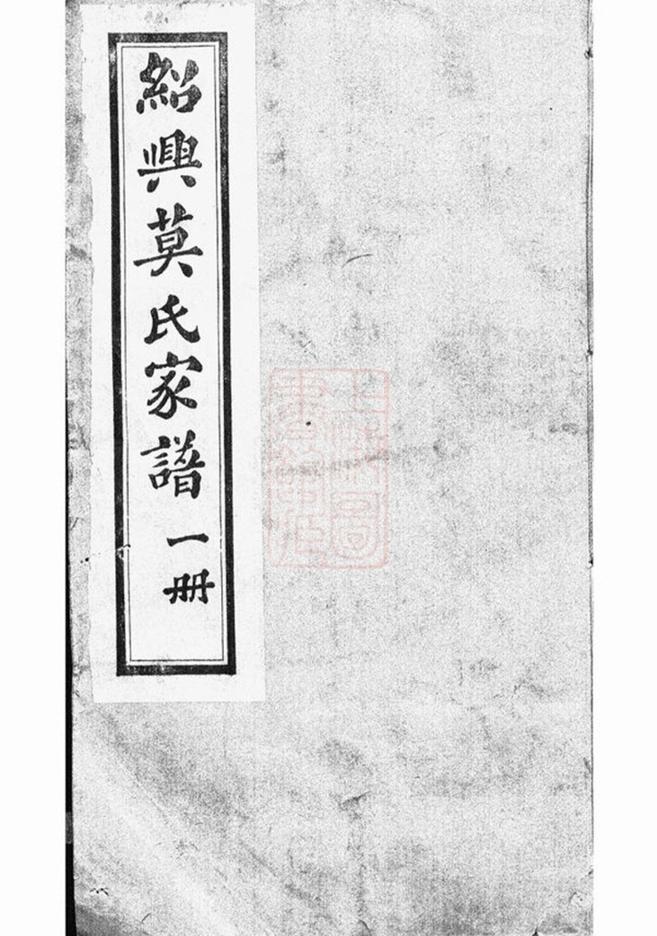 紹興莫氏家譜 一册